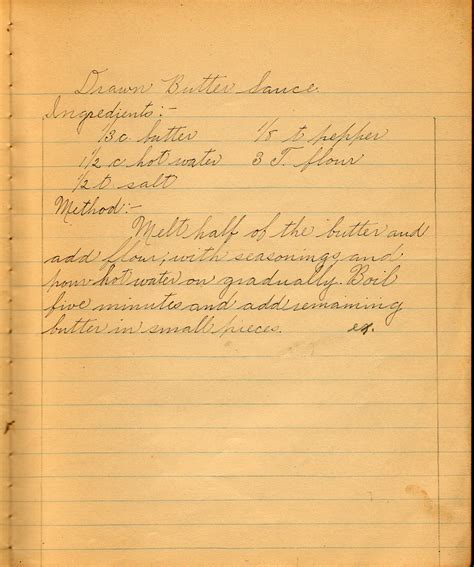 Drawn Butter Sauce.
Ingredients:-
1/3 c butter 1/8 t pepper
1 1/2 c hot water 3 T. flour
1/2 t salt
Method:-
Melt half of the butter and
add flour, with seasonings and
pour hot water on gradually. Boil
five minutes and add remaining
butter in small pieces. ex.